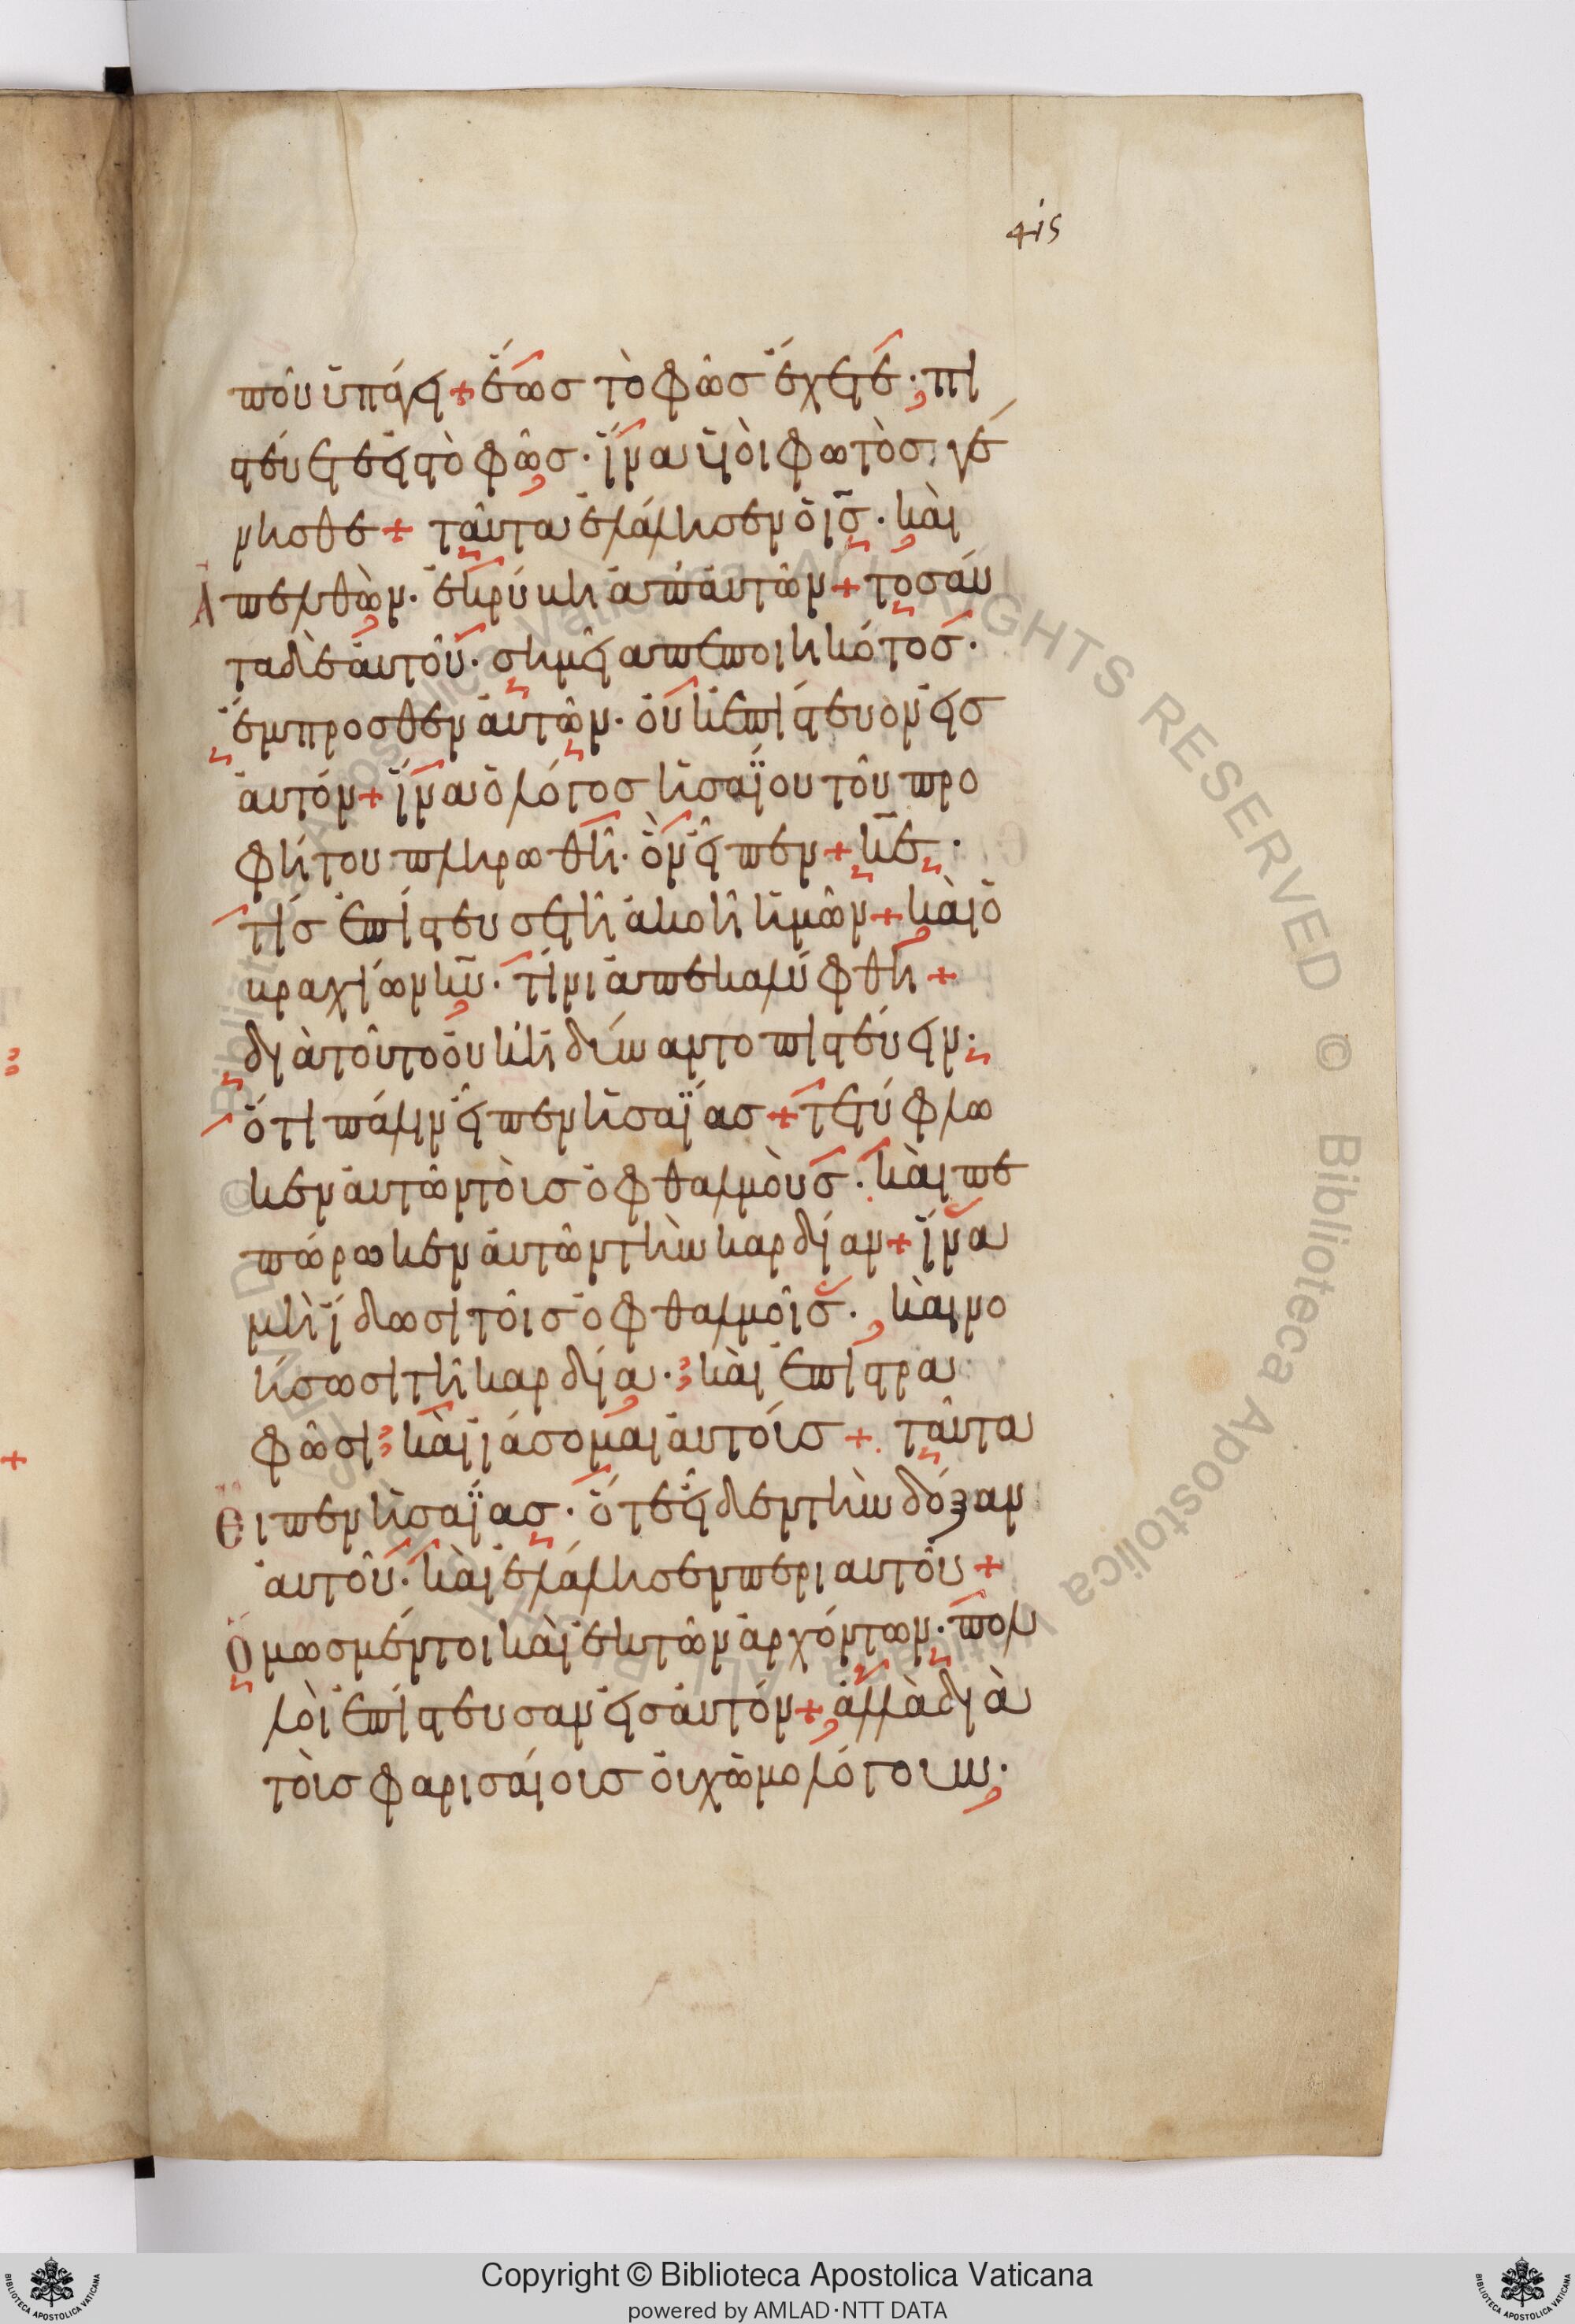 415
ποῦ ὑπάγει + ἕως τὸ φῶς ἔχετε · πι
στεύετε εἰς τὸ φῶς · ἵνα υἱοὶ φωτὸς γέ
νησθε + ταῦτα ἐλάλησεν ὁ ις̅ · καὶ
ἀπελθὼν · ἐκρύβη ἀπ' αὐτῶν + τοσαῦ
τα δὲ αὐτοῦ · σημεῖα πεποιηκότος ·
ἔμπροσθεν αὐτῶν · οὐκ ἐπίστευον εἰς
αὐτόν + ἵνα ὁ λόγος ἠσαΐου τοῦ προ
φήτου πληρωθῆ · ὃν εἶπεν + κε̅ ·
τίς ἐπίστευσε τῆ ἀκοῆ ἡμῶν + καὶ ὁ
βραχίων κυ̅ · τίνι ἀπεκαλύφθη +
διὰ τοῦτο οὐκ ἠδύναντο πιστεύειν ·
ὅτι πάλιν εἶπεν ἠσαΐας + τετύφλω
κεν αὐτῶν τοὺς ὀφθαλμοὺς · καὶ πε
πώρωκεν αὐτῶν τὴν καρδίαν + ἵνα
μὴ ἴδωσι τοῖς ὀφθαλμοῖς · καὶ νο
ήσωσι τῆ καρδία · καὶ ἐπιστρα
φῶσι καὶ ἰάσομαι αὐτούς + ταῦτα
εἶπεν ἠσαΐας · ὅτε εἶδεν τὴν δόξαν
αὐτοῦ · καὶ ἐλάλησεν περι αὐτοῦ +
ὅμως μέντοι καὶ ἐκ τῶν ἀρχόντων · πολ
λοὶ ἐπίστευσαν εἰς αὐτόν + ἀλλὰ διὰ
τοὺς φαρισαίους οὐχ ὡμολόγουν ·
Copyright © Biblioteca Apostolica Vaticana
powered by AMLAD·NTT DATA